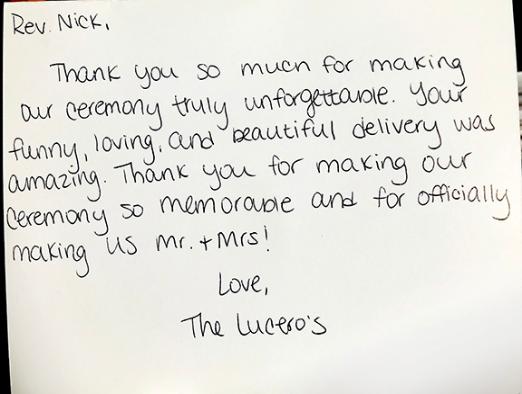 Rev. Nick,
Thank you so much for making
our ceremony truly unforgettable. Your
funny, loving, and beautiful delivery was
amazing. Thank you for making our
ceremony so memorable and for officially
making us mr. + Mrs!
Love,
The Lucero's